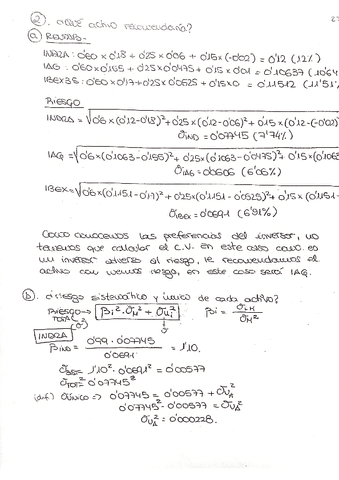 2. ¿Qué activo recomendaría?
27
a) RESULTADO.-
INDRA: 0'60 x 0'18 + 0'25 x 0'06 + 0'15 x (-0'02) = 0'12 (12%)
IAG : 0'60 x 0'155 + 0'25 x 0'0475 + 0'15 x 0'01 = 0'10637 (10'64
IBEX35: 0'60 x 0'17 + 0'25 x 0'0525 + 0'15 x 0 = 0'11512 (11'51%
RIESGO
INDRA = √0'6 x (0'12-0'18)² + 0'25 x (0'12-0'06)² + 0'15 x (0'12-(-0'02)
σIND = 0'07745 (7'74%)
IAG = √0'6 x (0'1063-0'155)² + 0'25 x (0'1063-0'0475)² + 0'15 x (0'1063
σIAG = 0'0606 (6'06%)
IBEX = √0'6 x (0'1151-0'17)² + 0'25 x (0'1151-0'0525)² + 0'15 x (0'1151-
σIBEX = 0'0691 (6'91%)
Como conocemos las preferencias del inversor, no
tenemos que calcular el C.V. en este caso como es
un inversor adverso al riesgo, le recomendamos el
activo con menos riesgo, en este caso será IAG.
b) ¿riesgo sistemático y único de cada activo?
RIESGO TOTAL (σ²) → βi² · σM² + σU² βi = σiM / σM²
INDRA
βIND = 0'99 · 0'07745 / 0'0691 = 1'10.
= 1'10² · 0'0691² = 0'00577
σTOT² = 0'07745²
(dif) Único => 0'07745² = 0'00577 + σU²
0'07745² - 0'00577 = σU²
σU² = 0'000228.